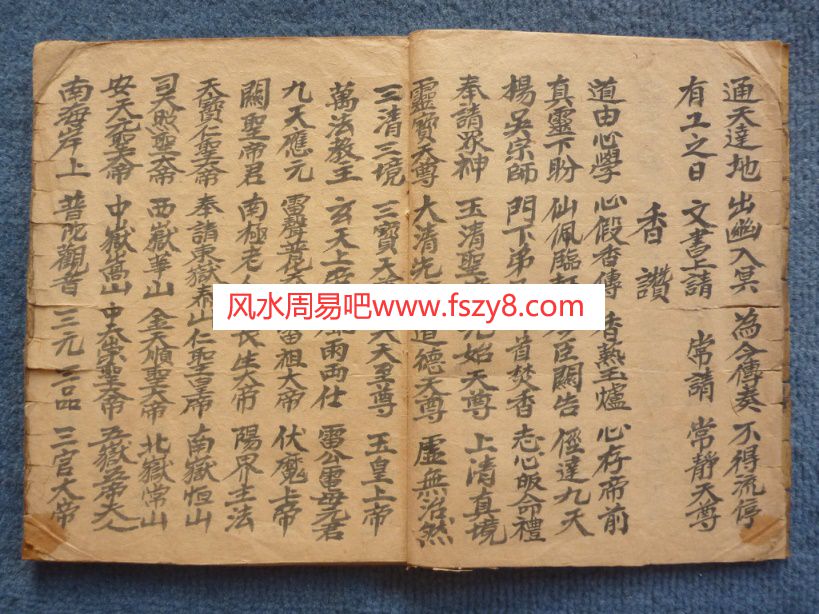 通天達地 出幽入冥 為今傳奏 不得流停
有工之日 文書上請 常請 常靜天尊
香讚
道由心學 心假香傳 香熱玉爐 心存帝前
真靈下盼 仙佩臨 臣關告 徑達九天
楊吳宗師 門下弟 首焚香 志心皈命禮
奉請眾神 玉清聖 元始天尊 上清真境
靈寶天尊 大清 道德天尊 虛無浩然
三清三境 三寶天 大天至尊 玉皇上帝
萬法教王 玄天上帝 雨雨仕 雷公電母元君
九天應元 雷聲普化 雷祖大帝 伏魔上帝
關聖帝君 南極老人 長生大帝 陽界主法
天寶仁聖大帝 奉請東嶽泰山仁聖皇帝 南嶽恒山
司天照聖大帝 西嶽華山 金天順聖大帝 北嶽常山
安天元聖大帝 中嶽嵩山 中天崇聖大帝 五嶽五帝夫人
南海岸上 普陀觀音 三元三品 三官大帝
风水周易吧www.fszy8.com